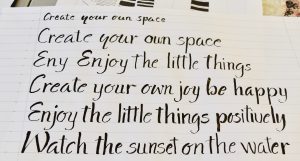 Create your own space
Create your own space
Eny Enjoy the little things
Create your own joy be happy
Enjoy the little things positively
Watch the sunset on the water